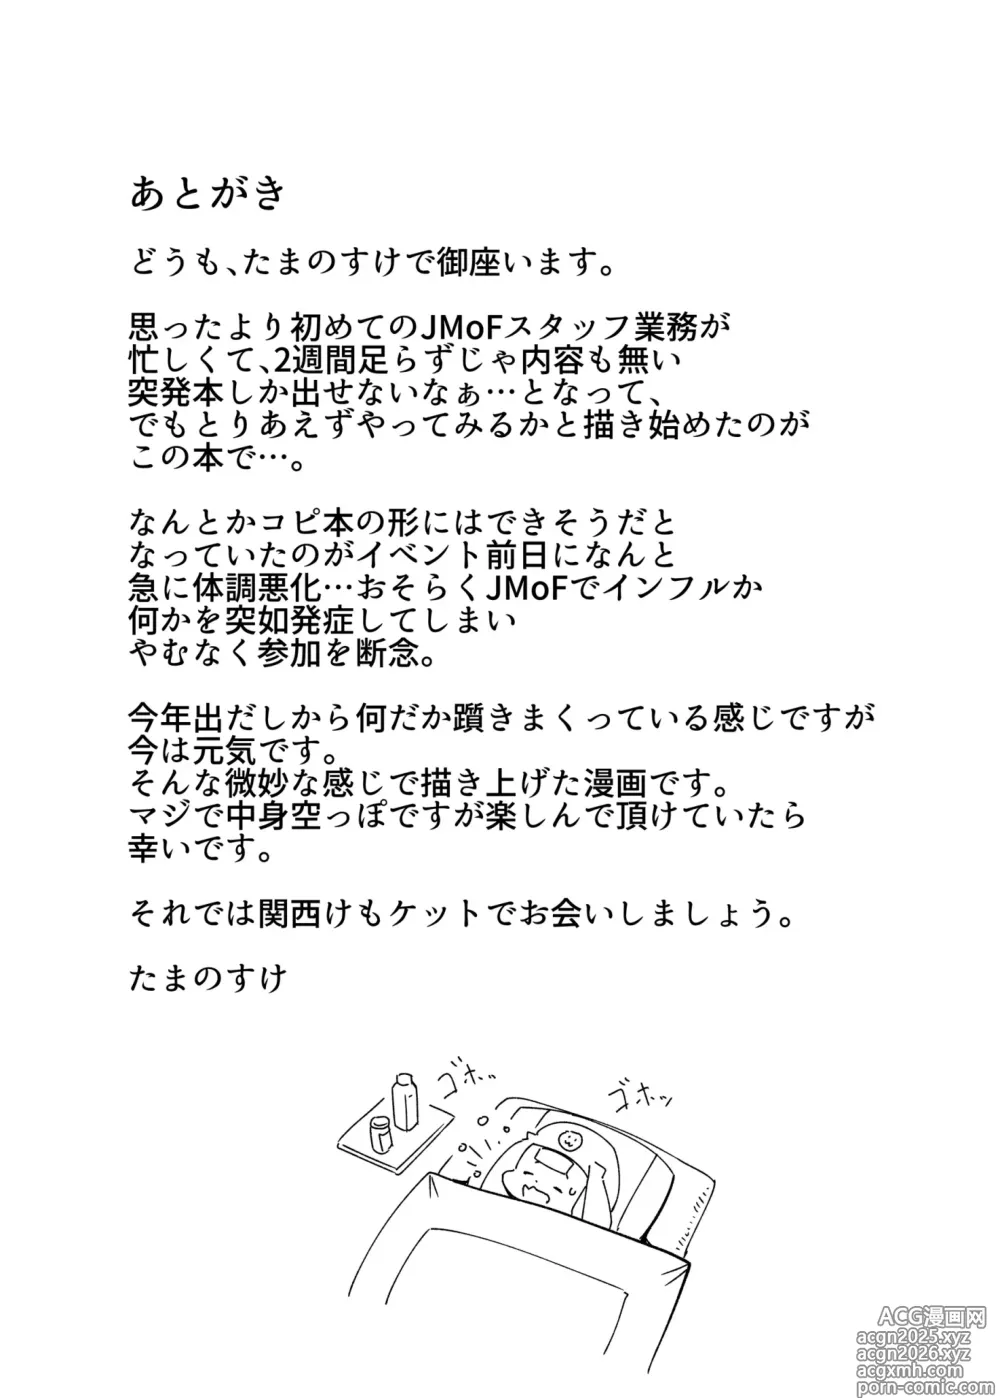 あとがき
どうも、たまのすけで御座います。
思ったより初めてのJMoFスタッフ業務が
忙しくて、2週間足らずじゃ内容も無い
突発本しか出せないなぁ…となって、
でもとりあえずやってみるかと描き始めたのが
この本で…。
なんとかコピ本の形にはできそうだと
なっていたのがイベント前日になんと
急に体調悪化…おそらくJMoFでインフルか
何かを突如発症してしまい
やむなく参加を断念。
今年出だしから何だか躓きまくっている感じですが
今は元気です。
そんな微妙な感じで描き上げた漫画です。
マジで中身空っぽですが楽しんで頂けていたら
幸いです。
それでは関西けもケットでお会いしましょう。
たまのすけ
ゴホッ
ゴホッ
ACG漫画网
acgn2025.xyz
acgn2026.xyz
acgxmh.com
porn-comic.com